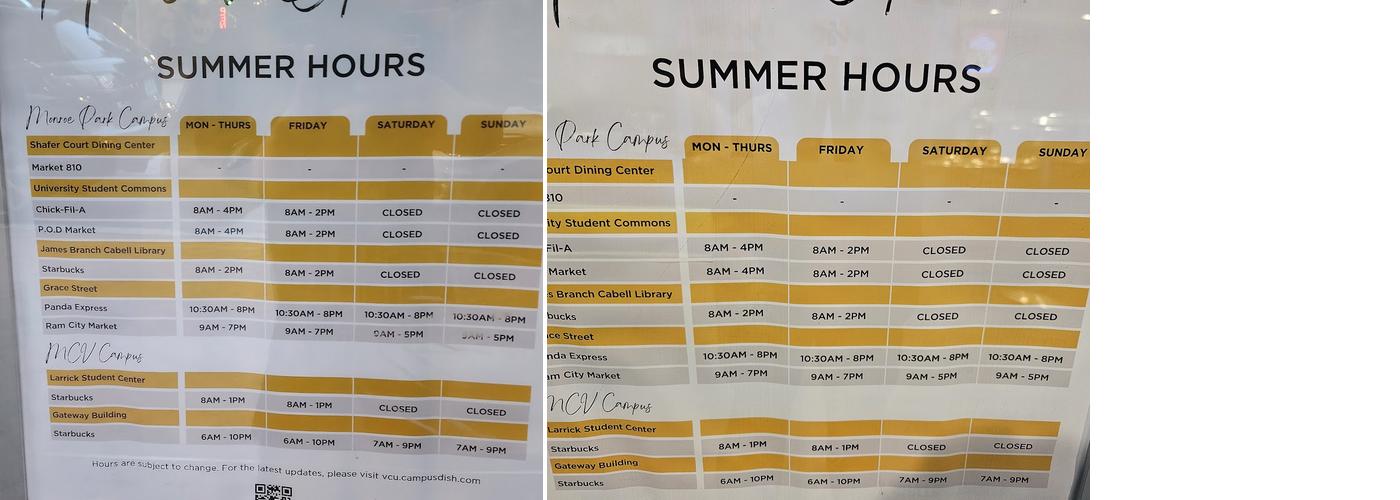 SUMMER HOURS
Monroe Park Campus MON - THURS FRIDAY SATURDAY SUNDAY
Shafer Court Dining Center
Market 810 - - - -
University Student Commons
Chick-Fil-A 8AM - 4PM 8AM - 2PM CLOSED CLOSED
P.O.D Market 8AM - 4PM 8AM - 2PM CLOSED CLOSED
James Branch Cabell Library
Starbucks 8AM - 2PM 8AM - 2PM CLOSED CLOSED
Grace Street
Panda Express 10:30AM - 8PM 10:30AM - 8PM 10:30AM - 8PM 10:30AM - 8PM
Ram City Market 9AM - 7PM 9AM - 7PM 9AM - 5PM 9AM - 5PM
MCV Campus
Larrick Student Center
Starbucks 8AM - 1PM 8AM - 1PM CLOSED CLOSED
Gateway Building
Starbucks 6AM - 10PM 6AM - 10PM 7AM - 9PM 7AM - 9PM
Hours are subject to change. For the latest updates, please visit vcu.campusdish.com
SUMMER HOURS
Park Campus MON - THURS FRIDAY SATURDAY SUNDAY
ourt Dining Center
810 - - - -
ity Student Commons
Fil-A 8AM - 4PM 8AM - 2PM CLOSED CLOSED
Market 8AM - 4PM 8AM - 2PM CLOSED CLOSED
s Branch Cabell Library
bucks 8AM - 2PM 8AM - 2PM CLOSED CLOSED
ce Street
nda Express 10:30AM - 8PM 10:30AM - 8PM 10:30AM - 8PM 10:30AM - 8PM
am City Market 9AM - 7PM 9AM - 7PM 9AM - 5PM 9AM - 5PM
MCV Campus
Larrick Student Center
Starbucks 8AM - 1PM 8AM - 1PM CLOSED CLOSED
Gateway Building
Starbucks 6AM - 10PM 6AM - 10PM 7AM - 9PM 7AM - 9PM